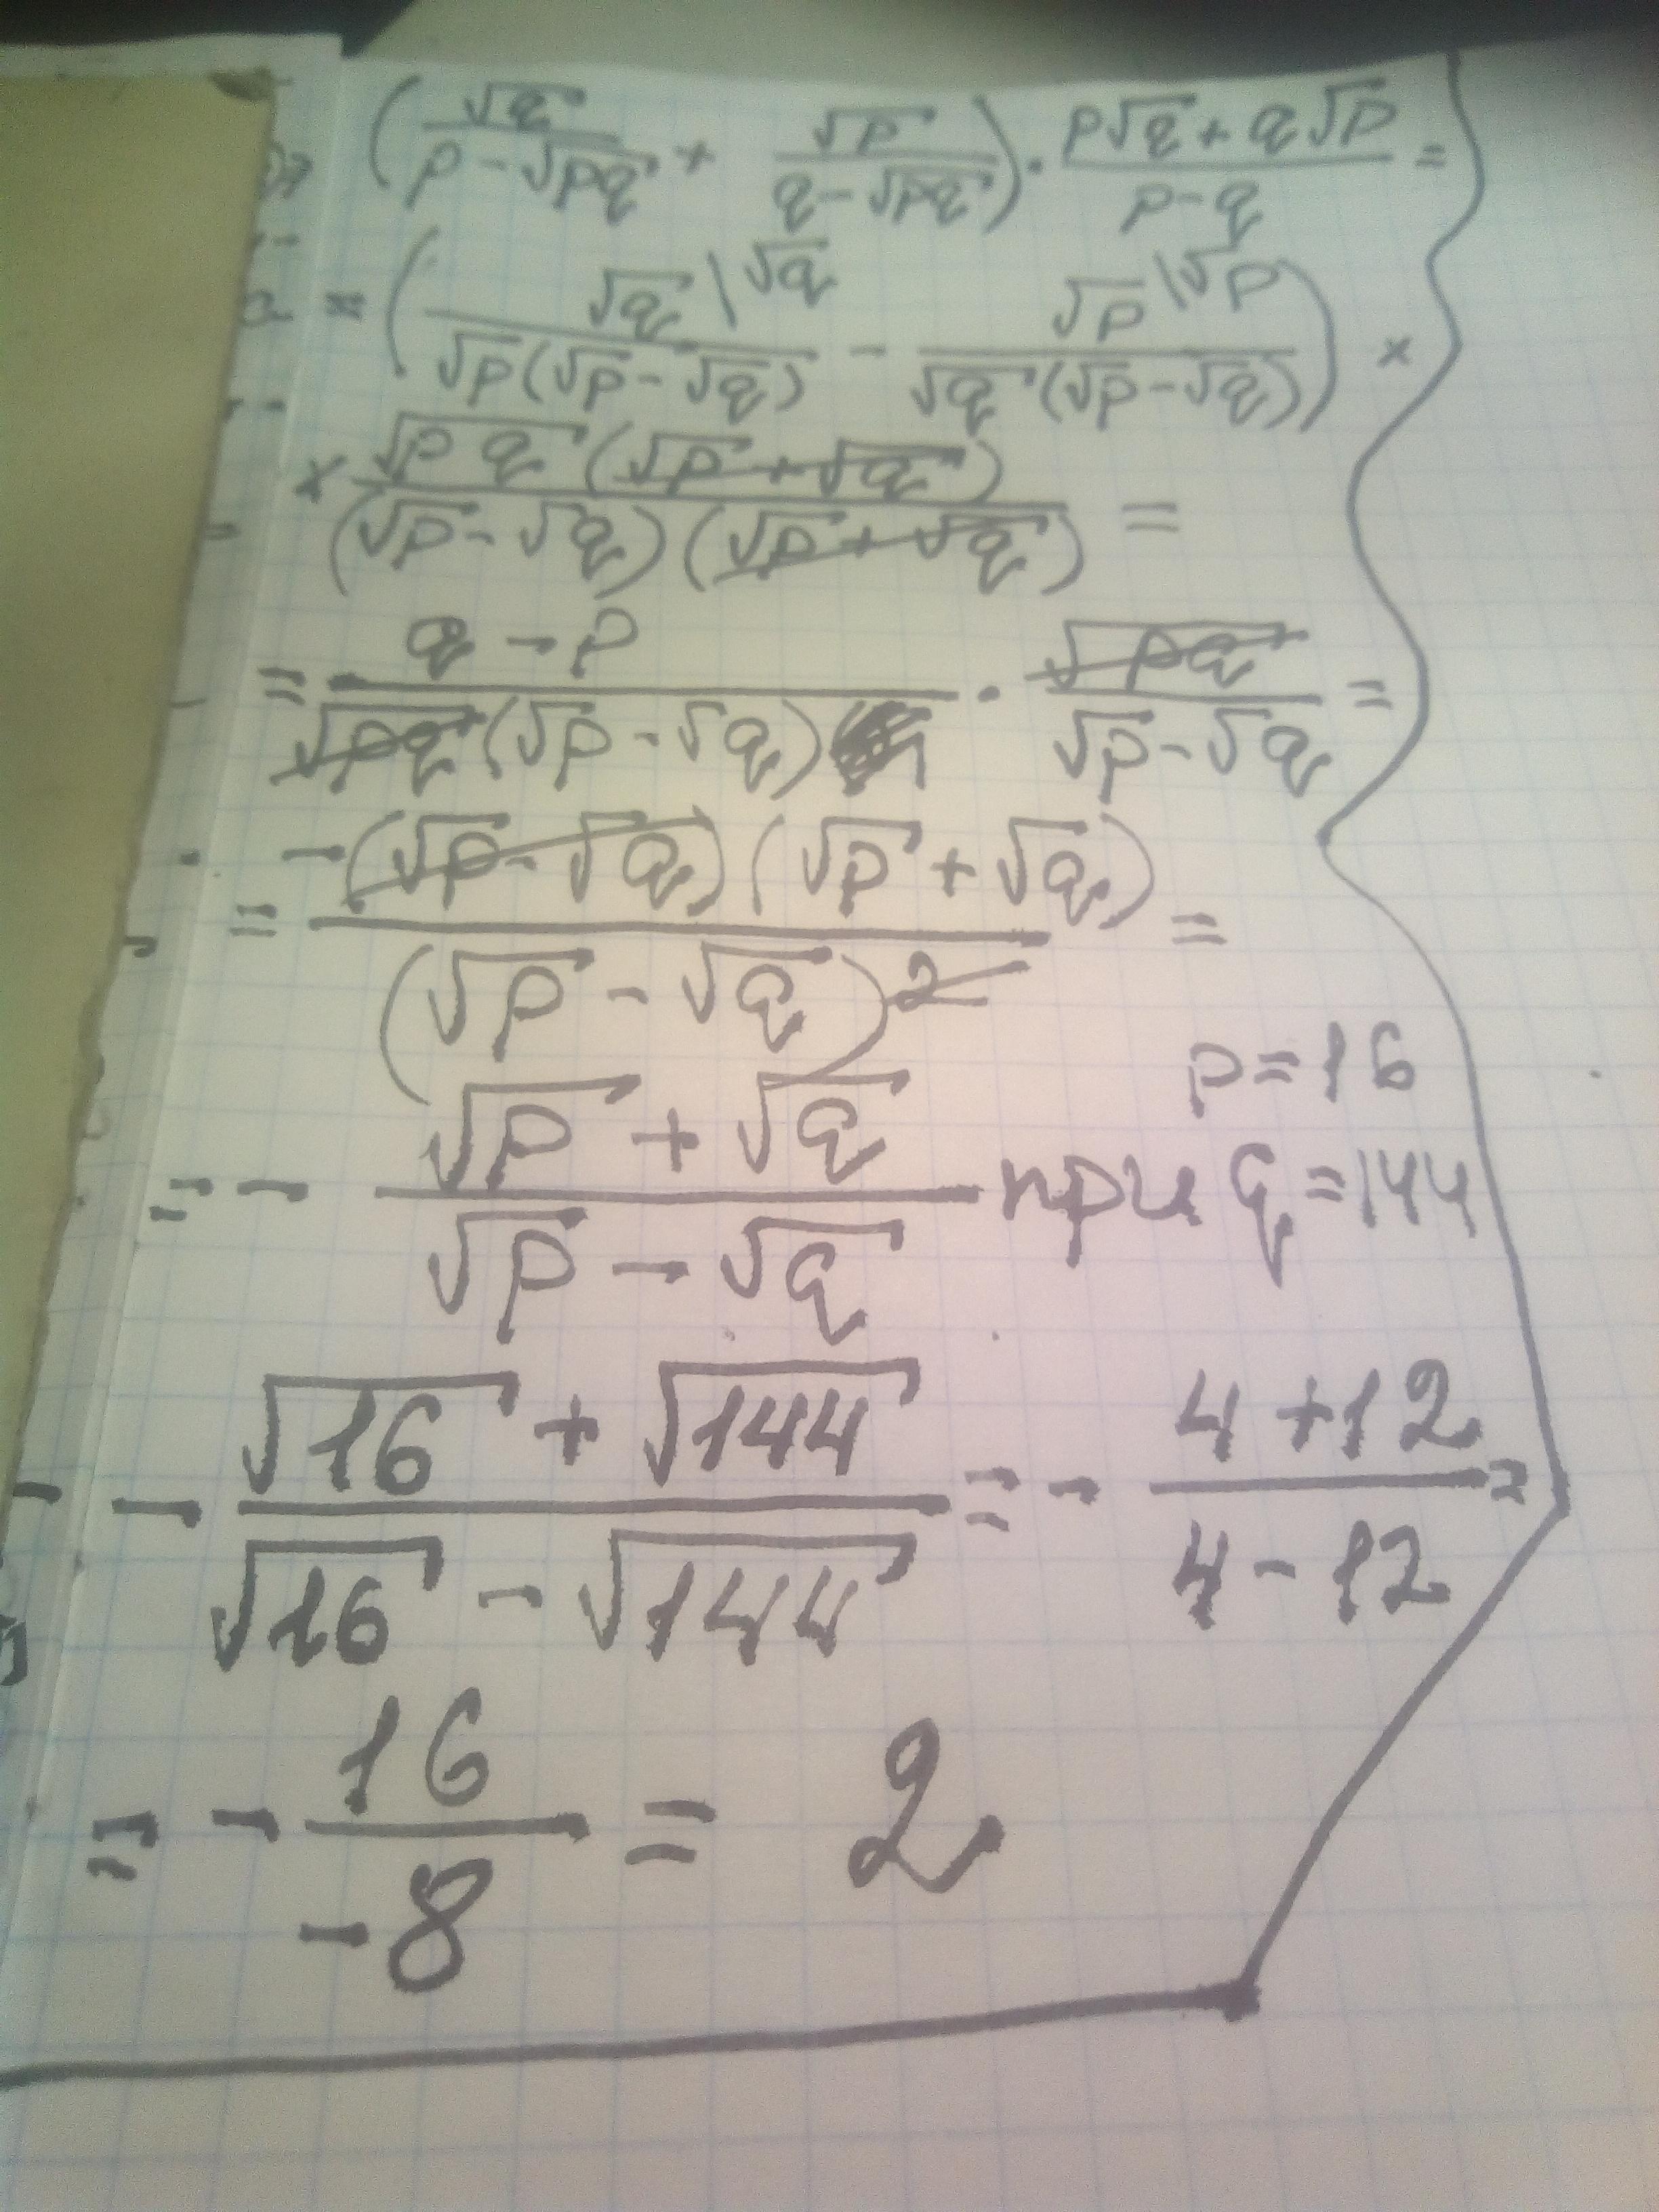 (√q/(p-√pq) + √p/(q-√pq)) · (p√q+q√p)/(p-q) =
= (√q\√q/(√p(√p-√q)) - √p\√p/(√q(√p-√q))) ×
× √pq(√p+√q)/((√p-√q)(√p+√q)) =
= (q-p)/(√pq(√p-√q)) · √pq/(√p-√q) =
= -(√p-√q)(√p+√q)/(√p-√q)² =
= - (√p+√q)/(√p-√q) при p=16 q=144
- (√16+√144)/(√16-√144) = - (4+12)/(4-12) =
= - 16/-8 = 2